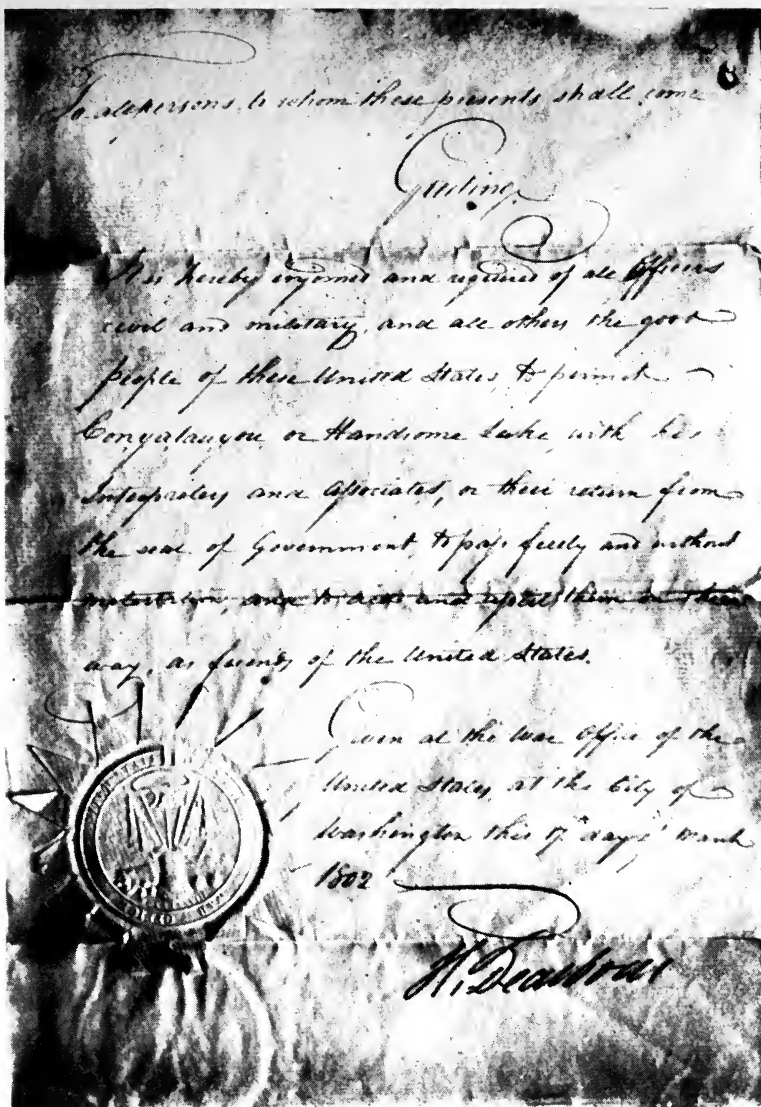 To all persons to whom these presents shall come
Greeting
It is hereby enjoined and required of all Officers
civil and military, and all others the good
people of these United States, to permit
Conyatauyou or Handsome Lake, with his
Interpreters and Associates, on their return from
the seat of Government, to pass freely and without
molestation, and to aid and assist them on their
way, as friends of the United States.
Given at the War Office of the
United States, at the City of
Washington this 17th day of March
1802
H. Dearborn